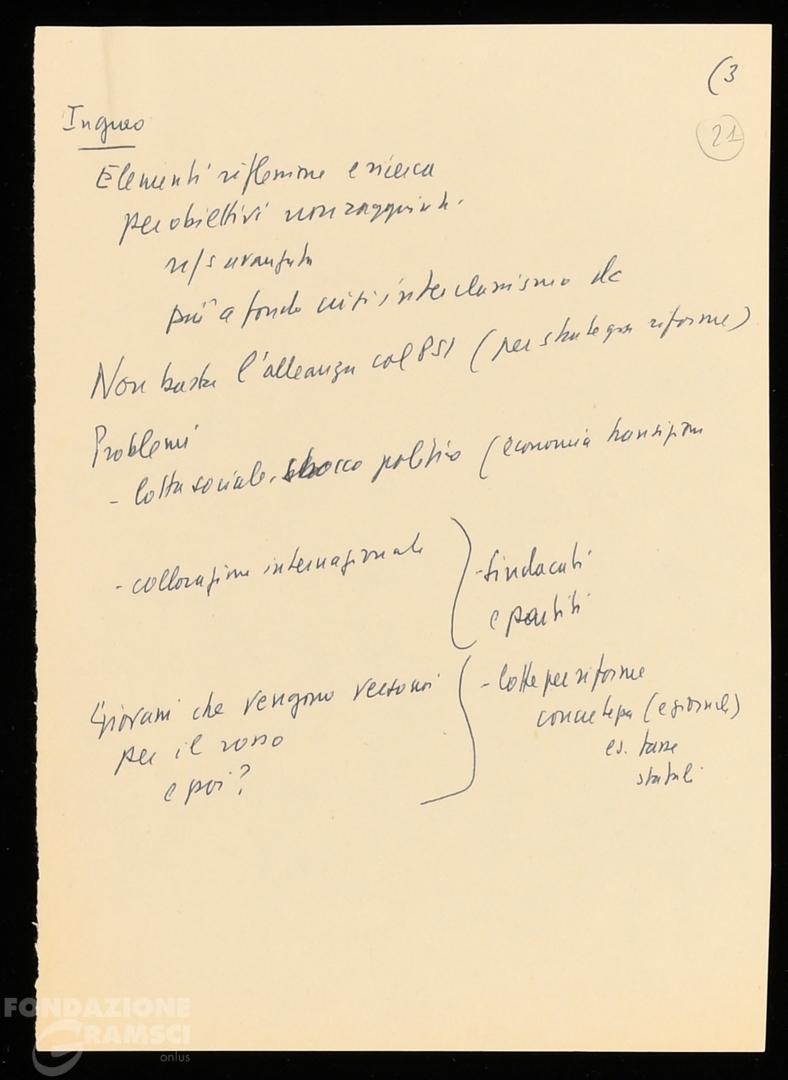 (3
21
Ingrao
Elementi riflessione e ricerca
per obiettivi non raggiunti.
n/s avanzata
più a fondo interclassismo dc
Non basta l'alleanza col PSI (per strategia riforme)
Problemi
- lotta sociale, sbocco politico (economia transizione
- collocazione internazionale
- sindacati
e partiti
Giovani che vengono verso noi
per il rosso
e poi?
- lotte per riforme
concretezza (e giornale)
es. tasse
statali
FONDAZIONE
GRAMSCI
onlus